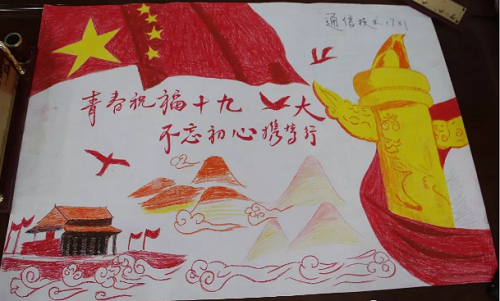 通信技术1721
青春祝福十九大
不忘初心携梦行